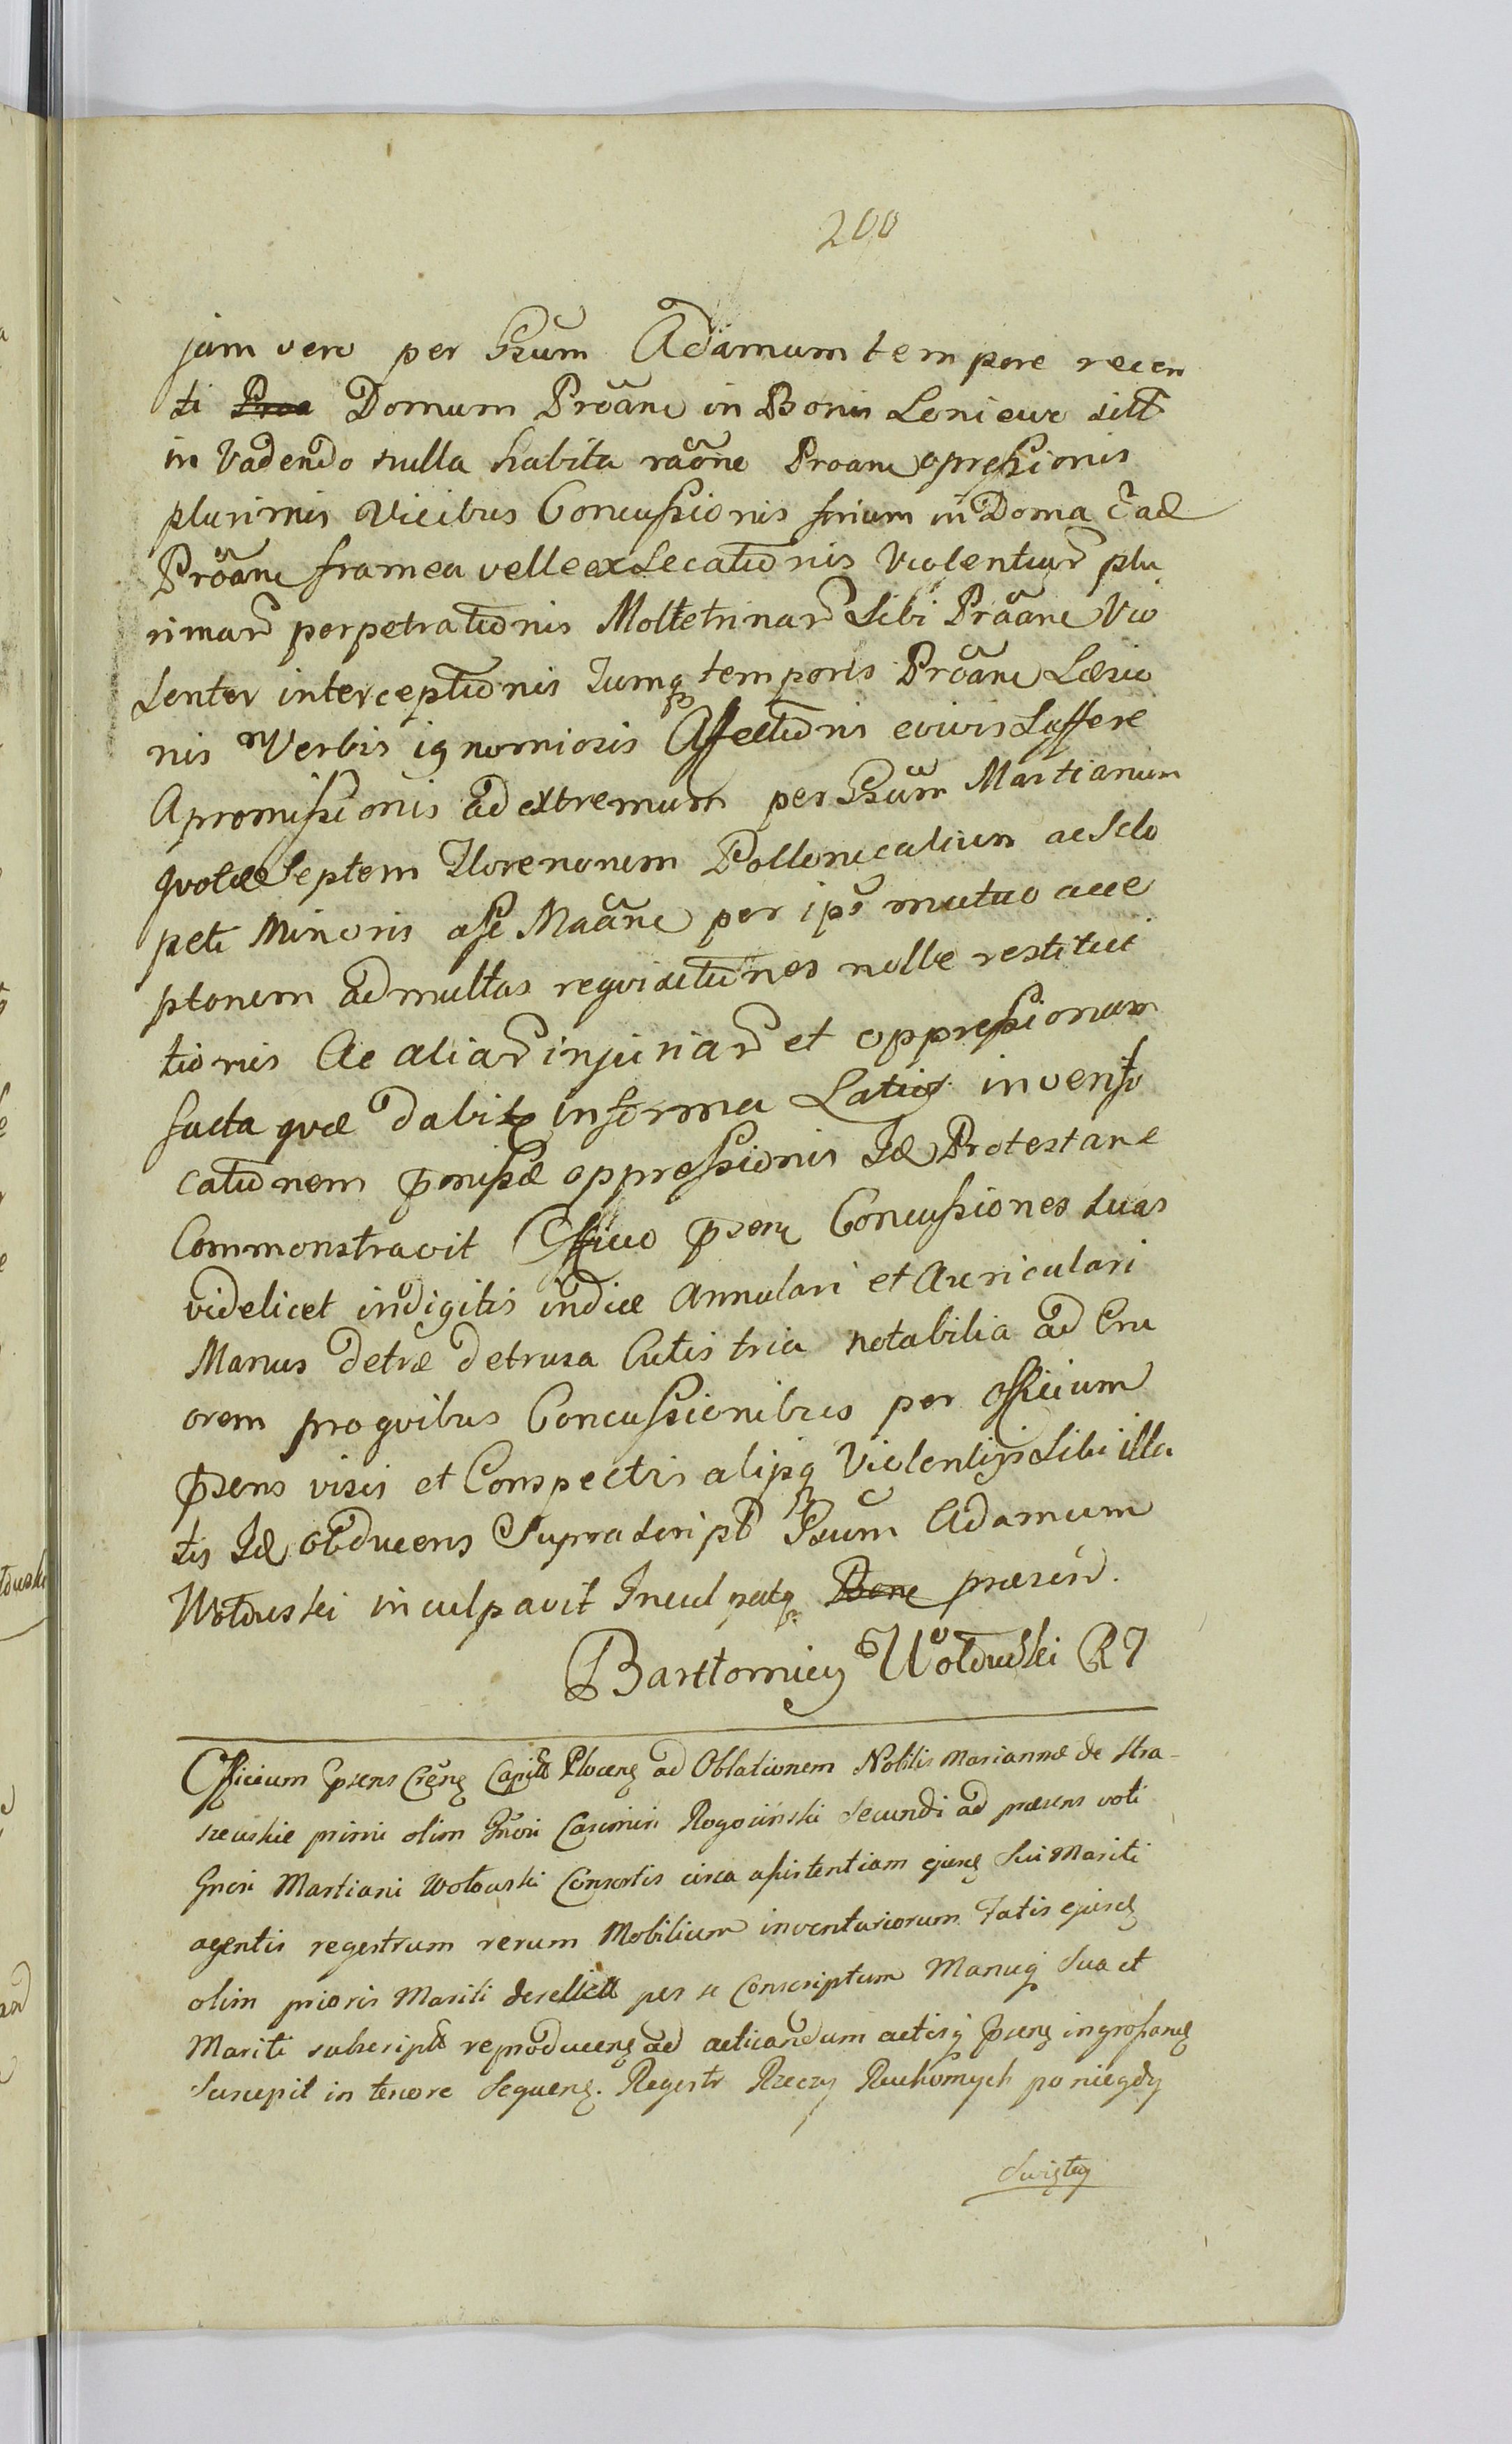 200
jam vero per Gsum Adamum tempore recen
ti Proa Domum Proane in Bonis Lonieuo sitt
in Vadendo nulla habita raone Proane opressionis
plurimis Vicibus Concussionis foriam in Doma
Proane framea velle exsecationis Violentiar plu
rimar perpetrationis Moltetrinar Sibi Proane Vio
lenter interceptionis Jumq temporis Proane Læsio
nis Verbis ignomiosis Affectionis eoivis Suffere
Apromissionis ad extremum per Gsum Martianum
quotæ Septem Florenorum Pollonicalium ac Sclo
peti Minoris a se Maane per ips mutuo acce
ptorum ad multas requisitiones nolle restitui
tionis Ac aliar injuriar et oppressionum
facta quæ dabitr in forma Latius inverifi
cationem pmissæ oppressionis Id Protestans
Commonstravit Officio psenti Concussiones suas
videlicet in digitis indice Annulari et Auriculari
Manus detræ detrusa Cutis tria notabilia ad Cru
orem pro quibus Concussionibus per officium
psens visis et Conspectis alijsq Violentijs Sibi illa
tis Id obducens Suprascript Gsum Adamum
Wołowski inculpavit Inculpatq Bene præsen.
Bartłomiey Wołowski R 7
Officium psens Crens Capitt Plocens ad Oblationem Nobilis Mariannæ de Stra-
szewskie primi olim Gnosi Casimiri Rogocinski secundi ad præsens voti
Gnosi Martiani Wołowski Consortis circa assistentiam ejusd sui Mariti
agentis regestrum rerum Mobilium inventariorum Fatis ejusd
olim prioris Mariti derelictt per se Conscriptum Manuq Sua et
Mariti subscriptt reproducens ad acticandum actisq psens ingrosand
Suscepit in tenore Sequens. Regestr Rzeczy Ruchomych po niegdy
Swiętey